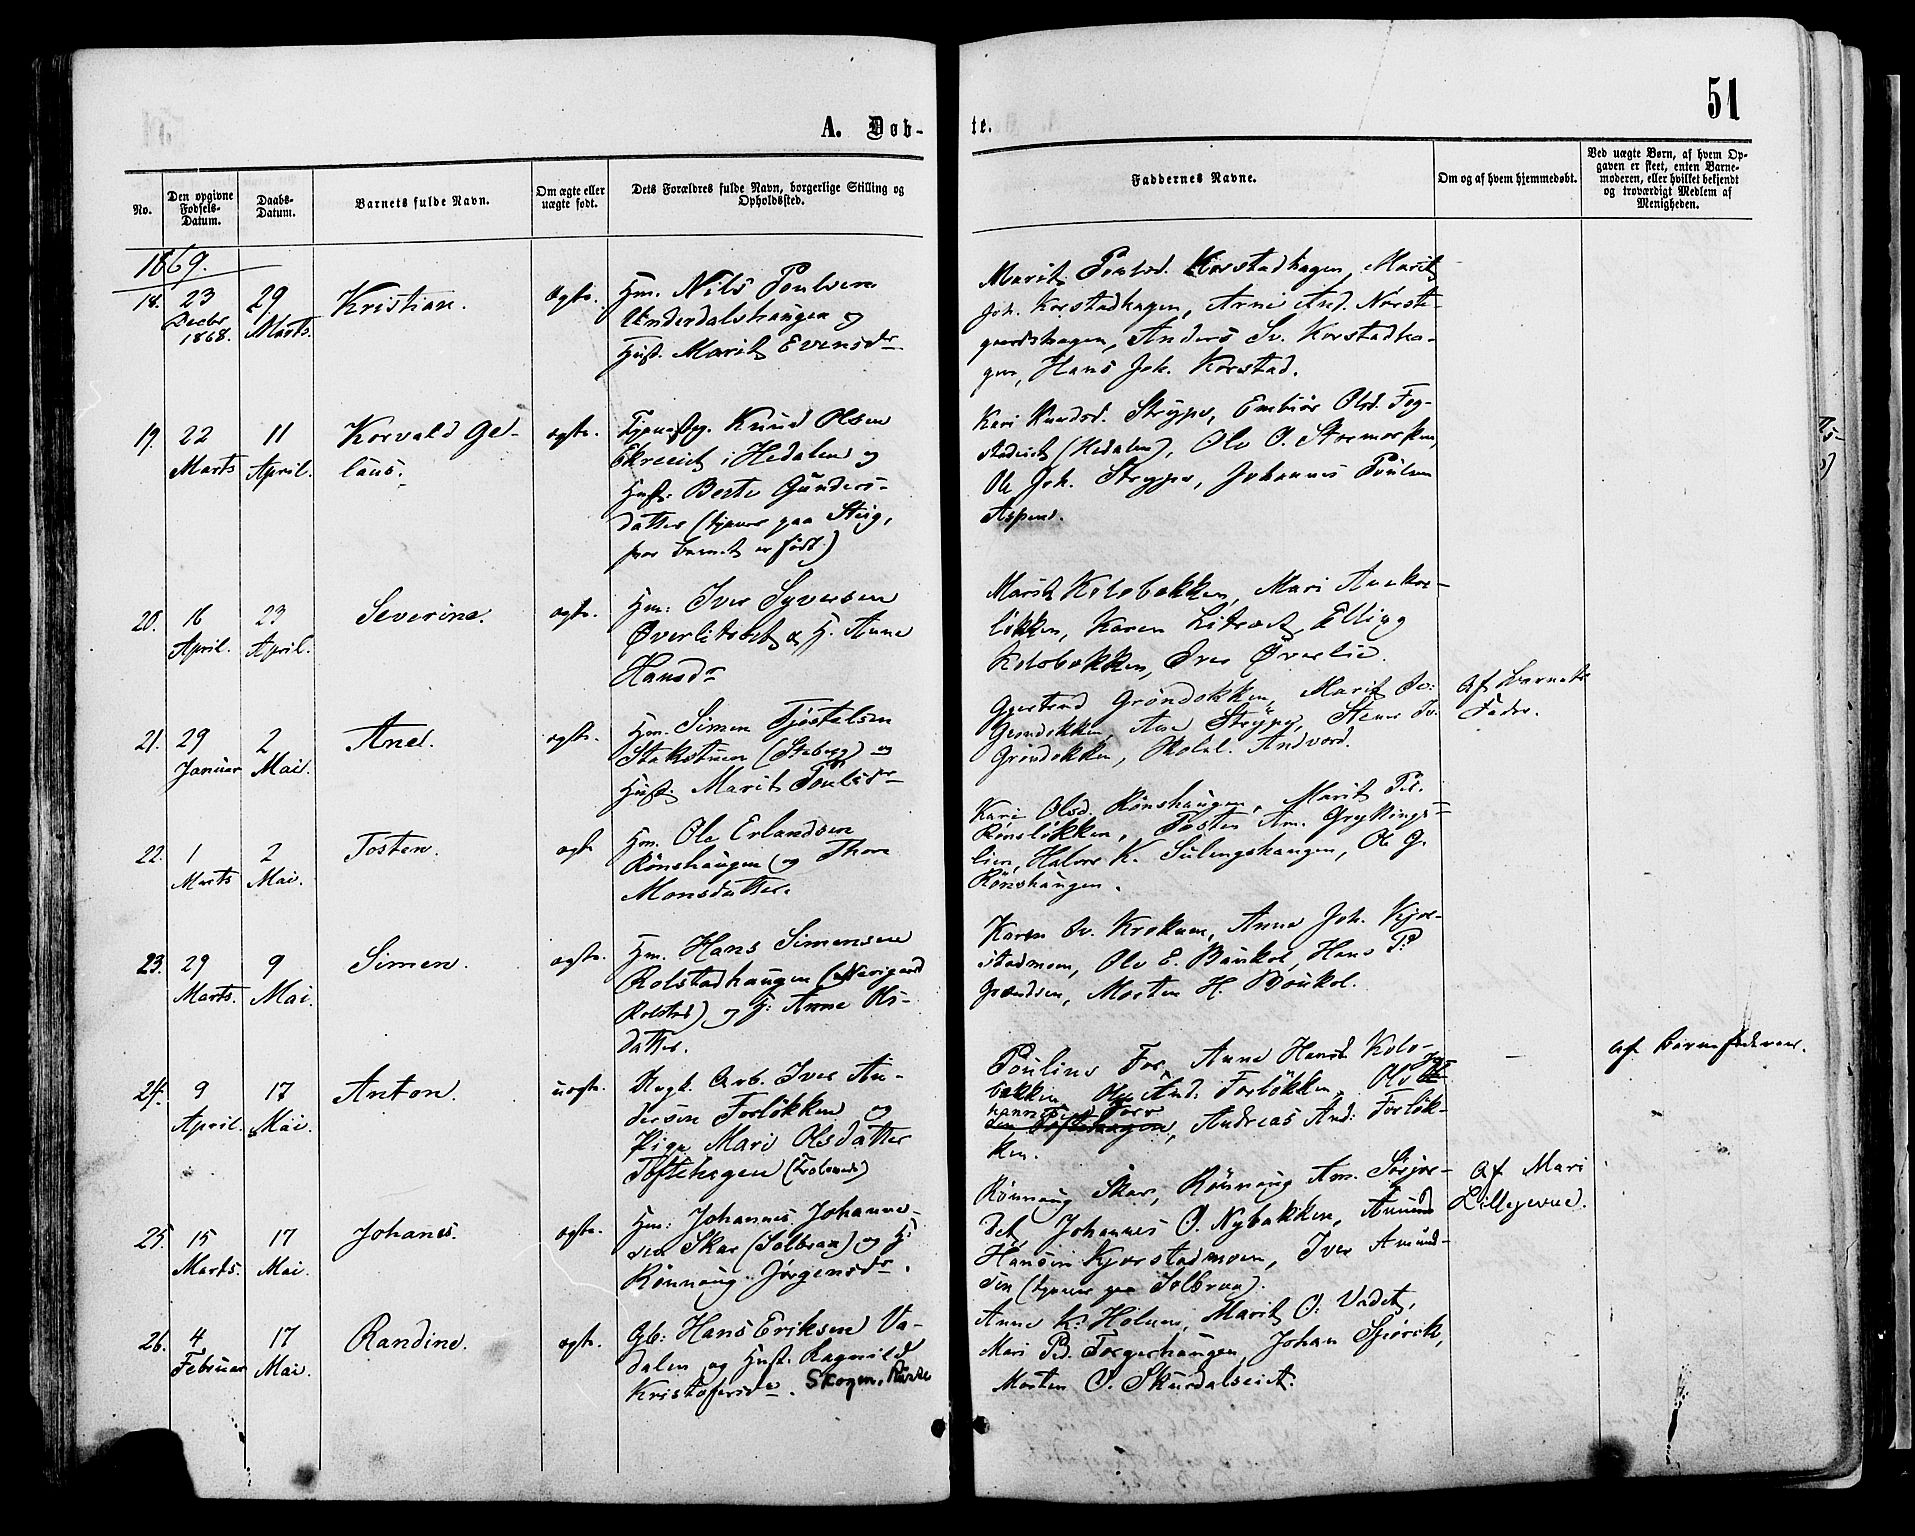 51
A. Døb-
te.
No.
Den opgivne
Fødsels-
Datum.
Daabs-
Datum.
Barnets fulde Navn.
Om ægte eller
uægte født.
Dets Forældres fulde Navn, borgerlige Stilling og
Opholdssted.
Faddernes Navne.
Om og af hvem hjemmedøbt.
Ved uægte Børn, af hvem Op-
gaven er skeet, enten Barne-
moderen, eller hvilket bekjendt
og troværdigt Medlem af
Menigheden.
1869.
18.
23
Decbr
1868.
29
Marts.
Kristian.
ægte.
Hm. Nils Poulsen
Underdalshaugen og
Hust. Marit Evensdr
Marit Poulsd. Korstadhagen, Marit
Joh. Korstadhagen, Arne And. Norste-
gaardshagen, Anders Sv. Korstadha-
gen, Hans Joh. Korstad.
19.
22
Marts
11
April.
Korvald Ge-
laus.
ægte.
Knud Olsen
Ekreeiet i Hedalen og
Hust. Berte Gunders-
datter (tjener paa Steig,
hvor barnet er født)
Kari Knudsd. Strype, Embiør Olsd. Fog-
stadeiet (Hedalen), Ole O. Stormorken,
Ole Joh. Strype, Johannes Poulsen
Aspend.
20.
16
April.
23
April.
Severine.
ægte.
Hm: Iver Syversen
Øverlistet & H. Anne
Hansdr
Marit Kolobakken, Mari
løkken, Karen Elling
Kolobakken, Iver Øverlie.
21.
29
Januar
2
Mai.
Ane.
ægte.
Hm. Simen Tjøstalsen
Stakstuen (Steberg) og
Hust. Marit Poulsdr
Gjertrud Grøndokken, Marit Sv:
Grøndokken, Ane Strype, Stener Sv.
Grøndokken, Skolel. Andvord.
Af Barnets
Fader.
22.
1
Marts
2
Mai.
Tosten.
ægt.
Hm. Ole Erlandsen
Rønshaugen og Thore
Monsdatter.
Kari Olsd. Rønshaugen, Marit
Rønsløkken, Tosten Am. Gryttings-
lien, Halvor K. Sulengshaugen, Ole G.
Rønshaugen.
23.
29
Marts.
9
Mai.
Simen.
ægte.
Hm. Hans Simensen
Rolstadhaugen (Nerigard
Rolstad) og H: Anne Ols-
datter.
Karen Sv. Krokum, Anne Joh. Kjor-
stadmoen, Ole E. Baukol, Hans P.
Frandsen, Morten H. Boukol.
24.
9
April.
17
Mai.
Anton.
uægte.
Ungk. Arb. Iver An-
dersen Forløkken og
Pige Mari Olsdatter
Toftehagen
Pouline For, Anne Hansd. Kolo-
bakken, Ole And. Forløkken, Ole Jo-
hannesen Forr
Toftehagen, Andreas And: Forløk-
ken.
Af Barnefaderen.
25.
15
Marts.
17
Mai.
Johanes.
ægte.
Hm: Johannes Johanne-
sen Skar (Solbraa) og H:
Rønnaug Jørgensdr.
Rønnaug Skar, Rønnaug Am. Sørjor-
det, Johannes O. Nybakken, Amund
Hansen Kjorstadmoen, Iver Amund-
sen (tjener paa Solbraa).
Af Mari
Lillejorde.
26.
4
Februar
17
Mai.
Randine.
ægte.
Gb: Hans Eriksen Va-
dalen og Hust. Ragnild
Kristofersdr. Skogen, Kürke
Anne K. Holmen, Marit O. Vadet,
Mari Pd. Torgerhaugen, Johan Spørik,
Morten O. Skurdalseiet.